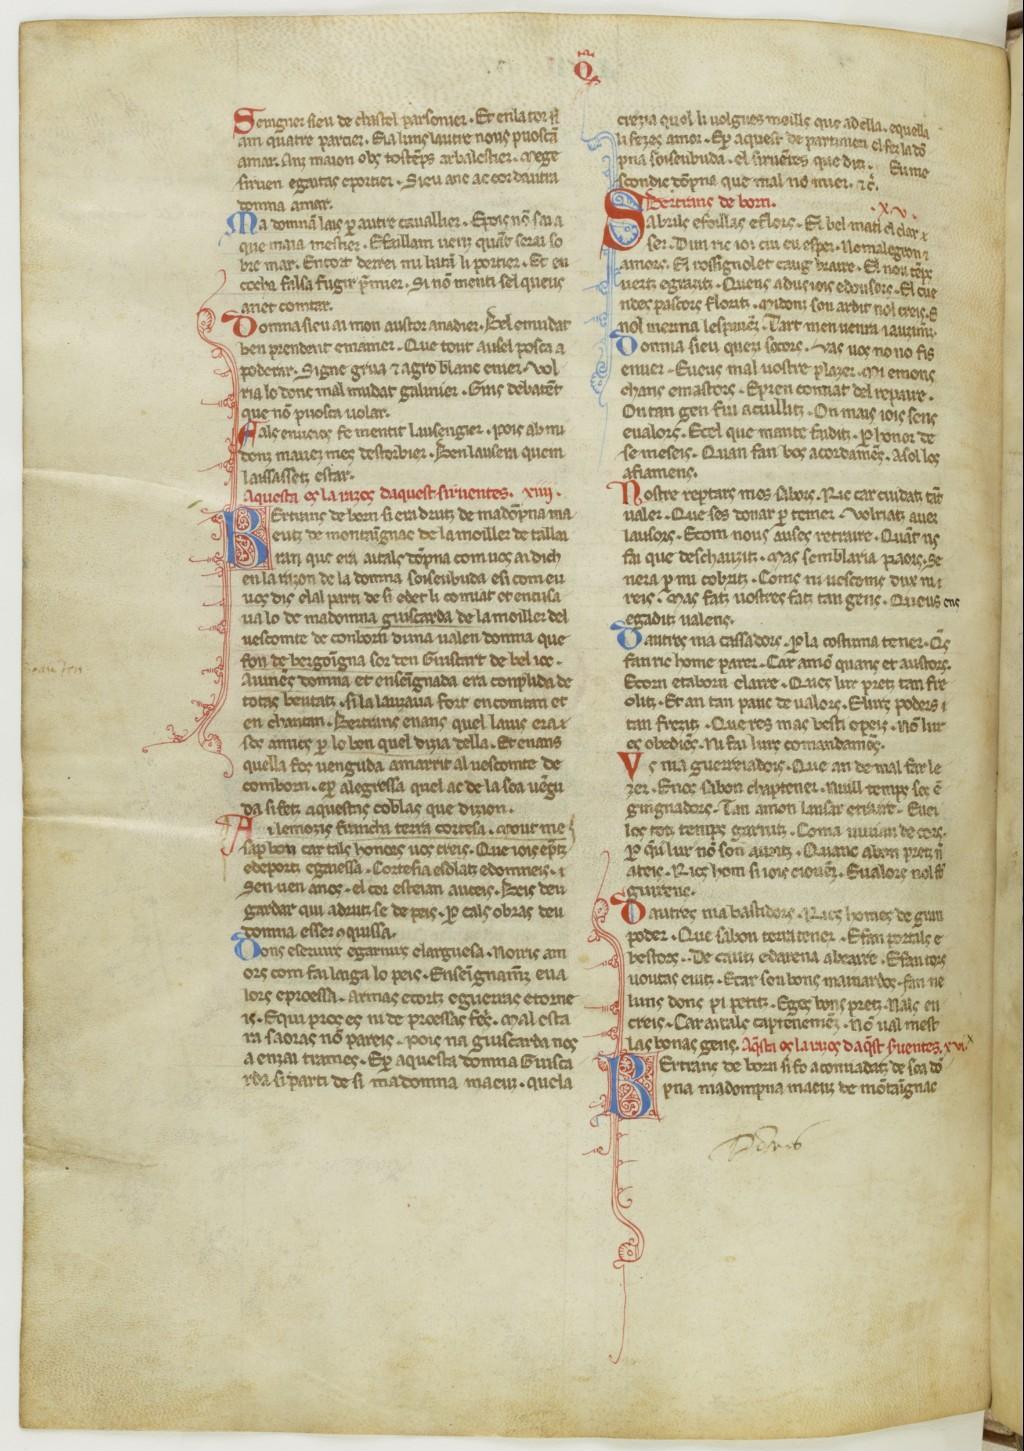 Q
Seingner sieu de chastel parsonier. Et en la tor si
am quatre parcier. Sia luns lautre nons puoscā
amar. Anz maion obs tostēps arbalestier. Mege
siruen egaitas eportier. Sieu anc ac cor dautra
domna amar.
Ma domnā lais p autre cauallier. Epois nō sai a
que maia mestier. Efaillam uenz quāt serai so
bre mar. En cort de rei mi batā li portier. Et en
cocha falsa fugir pmier. Si nō menti sel queus
anet comtar.
Domna sieu ai mon austor anadier. Bel emudat
ben prendent emainer. Que tout ausel posca a
poderar. Signe grua & agro blanc enier. Vol
ria lo donc mal mudat galinier. Gras debatēt
que nō puosca uolar.
Fals enuios fe mentit lausengier. Pois ab mi
donz mauez mes destorbier. Ben lausera quem
laissassetz estar.
Aquesta es la razos daquest siruentes. xiiii.
Bertrans de born si era drutz de madōpna ma
eutz de montaignac de la moiller de tallai
ran que era aitals dōpna com uos ai dich
en la razon de la domna soiseubuda e si com eu
uos dis ela l parti de si e det li comiat et encusa
ua lo de madomna guiscarda de la moiller del
uescomte de conborn duna ualen domna que
fon de bergoigna sor den Guiscart de bel ioc.
Auinēs domna et enseignada era conplida de
totas beutatz. si la lauzaua fort en comtan et
en chantan. Bertrans enans quel la uis era
ses amics p lo bon quel dizia della. Et enans
quella fos uenguda a marrit al uescomte de
comborn. ep alegressa quel ac de la soa uēgu
da si fetz aquestas coblas que dizion.
Ai lemozis francha terra cortesa. Mout me
sap bon car tals honors uos creis. Que iois eptz
edeportz egaiessa. Cortesia esolatz edomneis. i
sen uen anos. el cor esteian anceis. Beis deu
gardar qui a drut se depeis. P cals obras deu
domna esser aquissa.
Dons eseruirs egarnirs elarguesa. Noiris am
ors com fai laiga lo peis. Enseignamz eua
lors eproessa. Armas ecortz eguerras etorne
is. E qui pros es ni de proessas fes. Mal esta
ra saoras nō pareis. Pois na guiscarda nos
a en zai tramesa. Ep aquesta domna Guisca
rda si parti de si ma domna maeuz. quela
crezia quel li uolgues meills que ad ella. e quella
li fezes amor. Ep aquest departimen el fetz la dō
pna soiseubuda. el siruētes que ditz. Eu me
scondic dōpna que mal nō mier. &c.
Bertrans de born. xv.
Sabrils e foillas e flors. El bel mati el clar
ser. Dun ric ioi cui eu esper. No malegron
amors. El rossignolet caug braire. El nou tēps
uertz egrazitz. Quens adus iois edousors. El cue
ndes pascors floritz. Midonz son ardit nol creis. E
nol merma lespauēz. Tart men uenra iauzimz.
Domna sieu quezi socors. Vas uos no no fis
enuer. Eueus mal uostre plazer. Mi emons
chans emas tors. Epren comiat del repaire.
On tan gen fui acuillitz. On mais iois sens
eualors. Ecel que mante faiditz. P honor de
se meseis. Quan fan bos acordamēs. A sol los
afiamens.
Uostre reptars mes sabors. Ric car cuidatz tāt
ualer. Que ses donar p temer. Volriatz auer
lausors. Ecom nous auses retraire. Quāt us
fai que deschauzitz. Mas semblaria paors. Se
nera p mi cobritz. Coms ni uescoms dux ni
reis. Mas faitz uostres faitz tan gens. Queus ens
egaditz ualens.
Dautres ma cassadors. P la costuma tener. Qs
fan ric home parer. Car amō quans et austors.
E corn etaborn claire. Ques lur pretz tan fre
olitz. Et an tan pauc de ualors. Elurs poders i
tan frezitz. Que res mas besti o peis. Nō lur
es obediēs. Ni fai lurs comandamēs.
Us nia guerreiadors. Que an de mal far le
zer. Enos sabon chaptener. Nuill temps ses ē
gingnadors. Tan amon lansar etraire. Euei
los totz temps garnitz. Coma uiuian de cors.
P qui lur nō son auzitz. Quanc abon pretz n
ateis. Rics hom si iois e iouenz. Eualors noll fo
guirens.
Dautres nia bastidors. Rics homes de gran
poder. Que sabon terra tener. Efan portals e
bestors. De cautz edarena abzaire. Efan tors
uoutas euitz. Ecar son bons maniardors. fan ne
lurs dons pl petitz. Eges bons pretz. Nals en
creis. Car aitals captenemēz. Nō ual mest
las bonas gens. Aqsta es la razos daqst siruentes. xvi.
Bertrans de born si fo acomiadatz de soa dō
pna madompna maeuz de mōtaignac